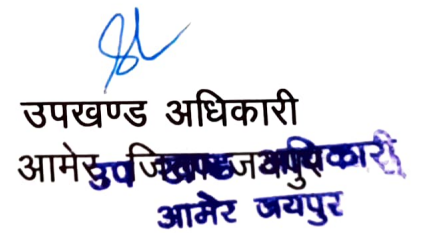 उपखण्ड अधिकारी
आमेर जिला जयपुर
उप खण्ड अधिकारी
आमेर जयपुर